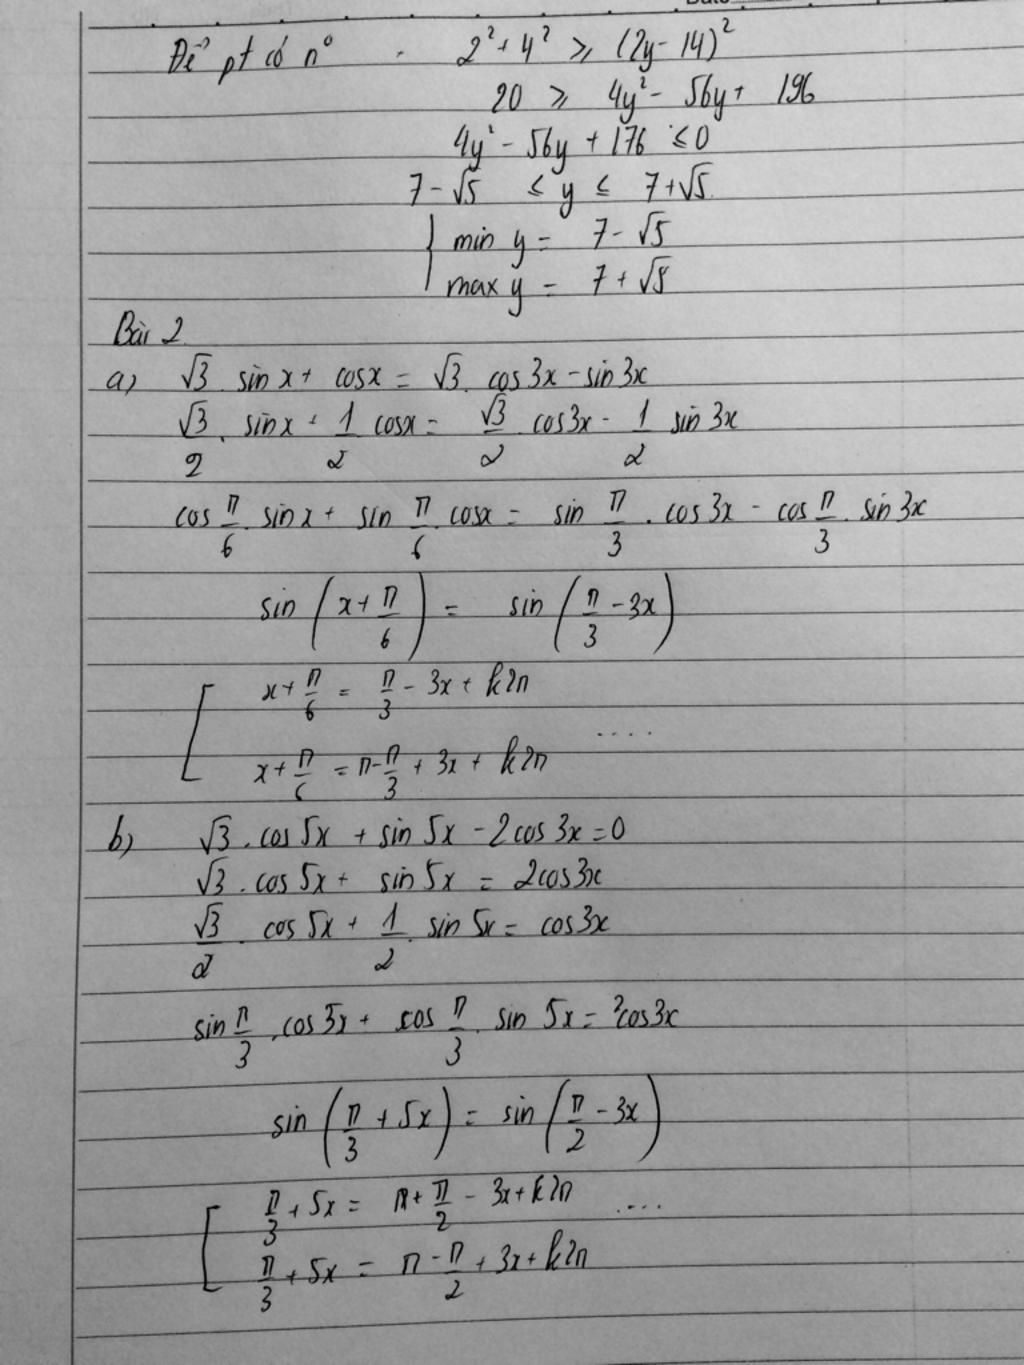 Để pt có n° . 2² + 4² ⩾ (2y - 14)²
20 ⩾ 4y² - 56y + 196
4y² - 56y + 176 ≤ 0
7 - √5 ≤ y ≤ 7 + √5
{ min y = 7 - √5
max y = 7 + √5
Bài 2
a) √3 . sin x + cos x = √3 . cos 3x - sin 3x
√3/2 . sin x + 1/2 cos x = √3/2 cos 3x - 1/2 sin 3x
cos π/6 . sin x + sin π/6 . cos x = sin π/3 . cos 3x - cos π/3 . sin 3x
sin (x + π/6) = sin (π/3 - 3x)
[ x + π/6 = π/3 - 3x + k2π
x + π/6 = π - π/3 + 3x + k2π ....
b) √3 . cos 5x + sin 5x - 2 cos 3x = 0
√3 . cos 5x + sin 5x = 2cos 3x
√3/2 . cos 5x + 1/2 . sin 5x = cos 3x
sin π/3 . cos 5x + cos π/3 . sin 5x = cos 3x
sin (π/3 + 5x) = sin (π/2 - 3x)
[ π/3 + 5x = π/2 - 3x + k2π ....
π/3 + 5x = π - π/2 + 3x + k2π